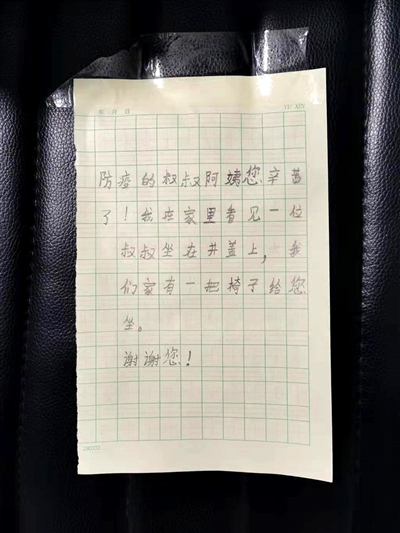 年 月 日
YU XIN
防疫的叔叔阿姨您辛苦
了！我在家里看见一位
叔叔坐在井盖上，我
们家有一把椅子给您
坐。
谢谢您！